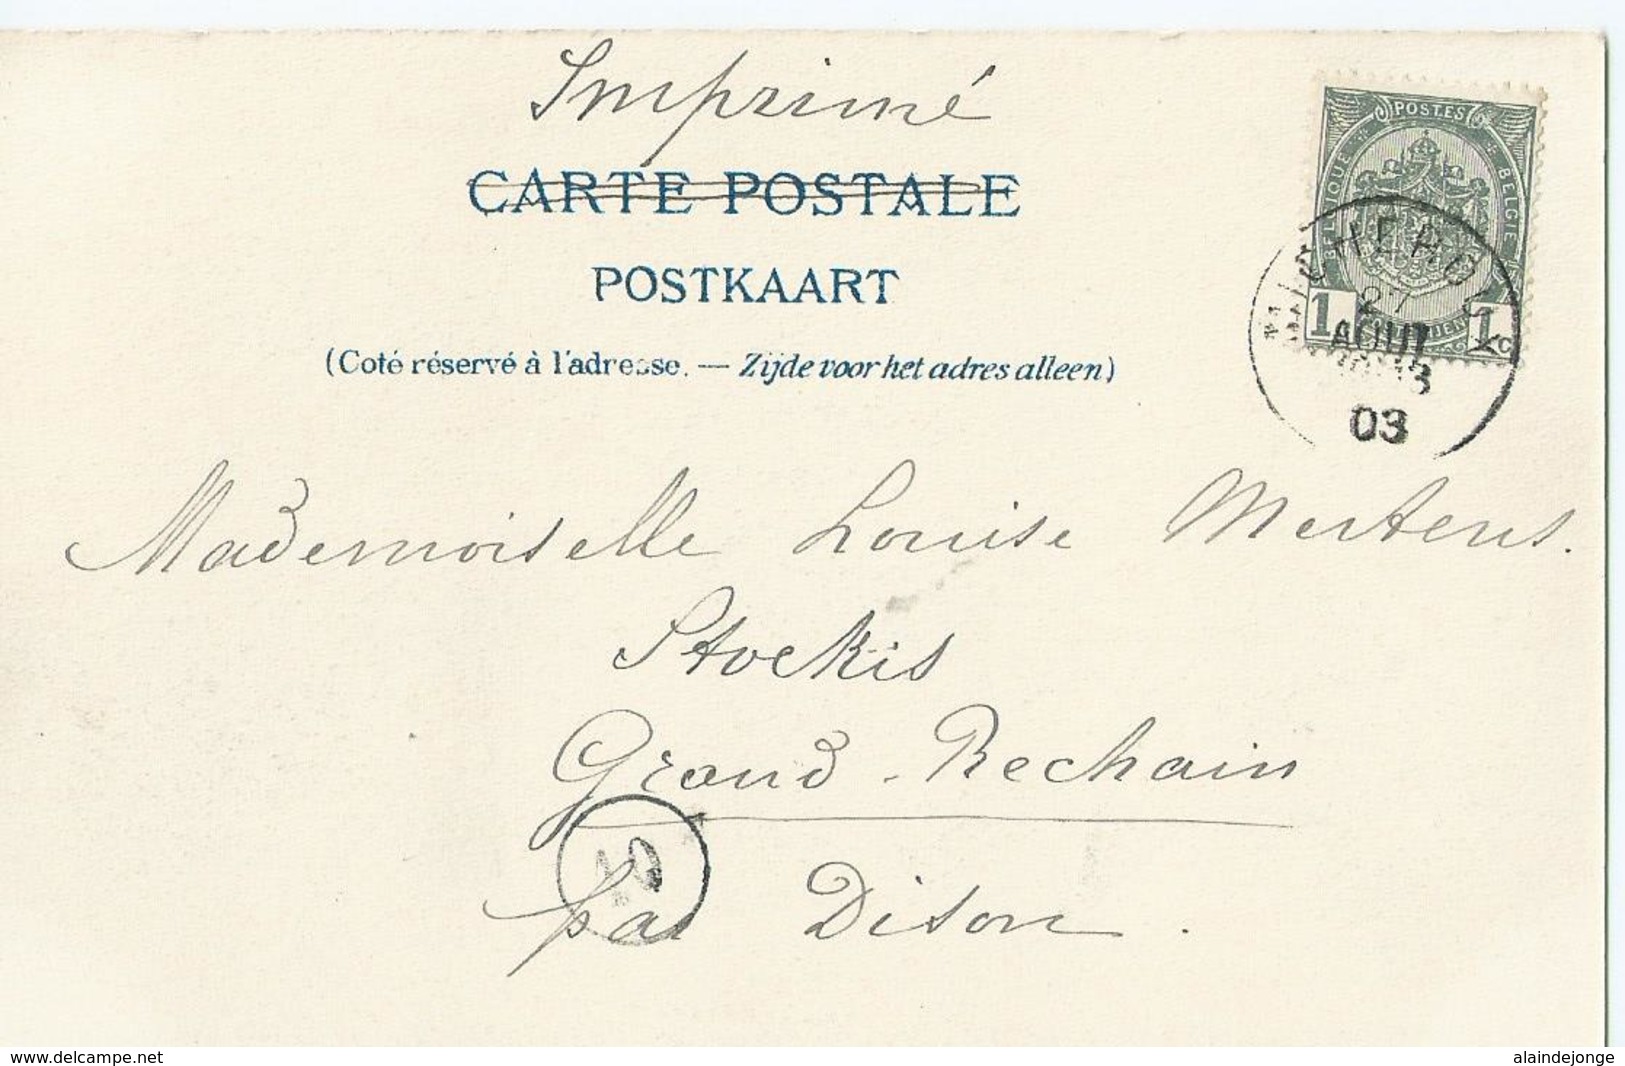 Imprimé
CARTE POSTALE
POSTKAART
(Coté réservé à l'adresse. — Zijde voor het adres alleen)
POSTES
BELGIQUE
BELGIE
1
1c
27
AOUT
03
Mademoiselle Louise Mertens.
Stockis
Grand-Rechain
par Dison.
www.delcampe.net
alaindejonge